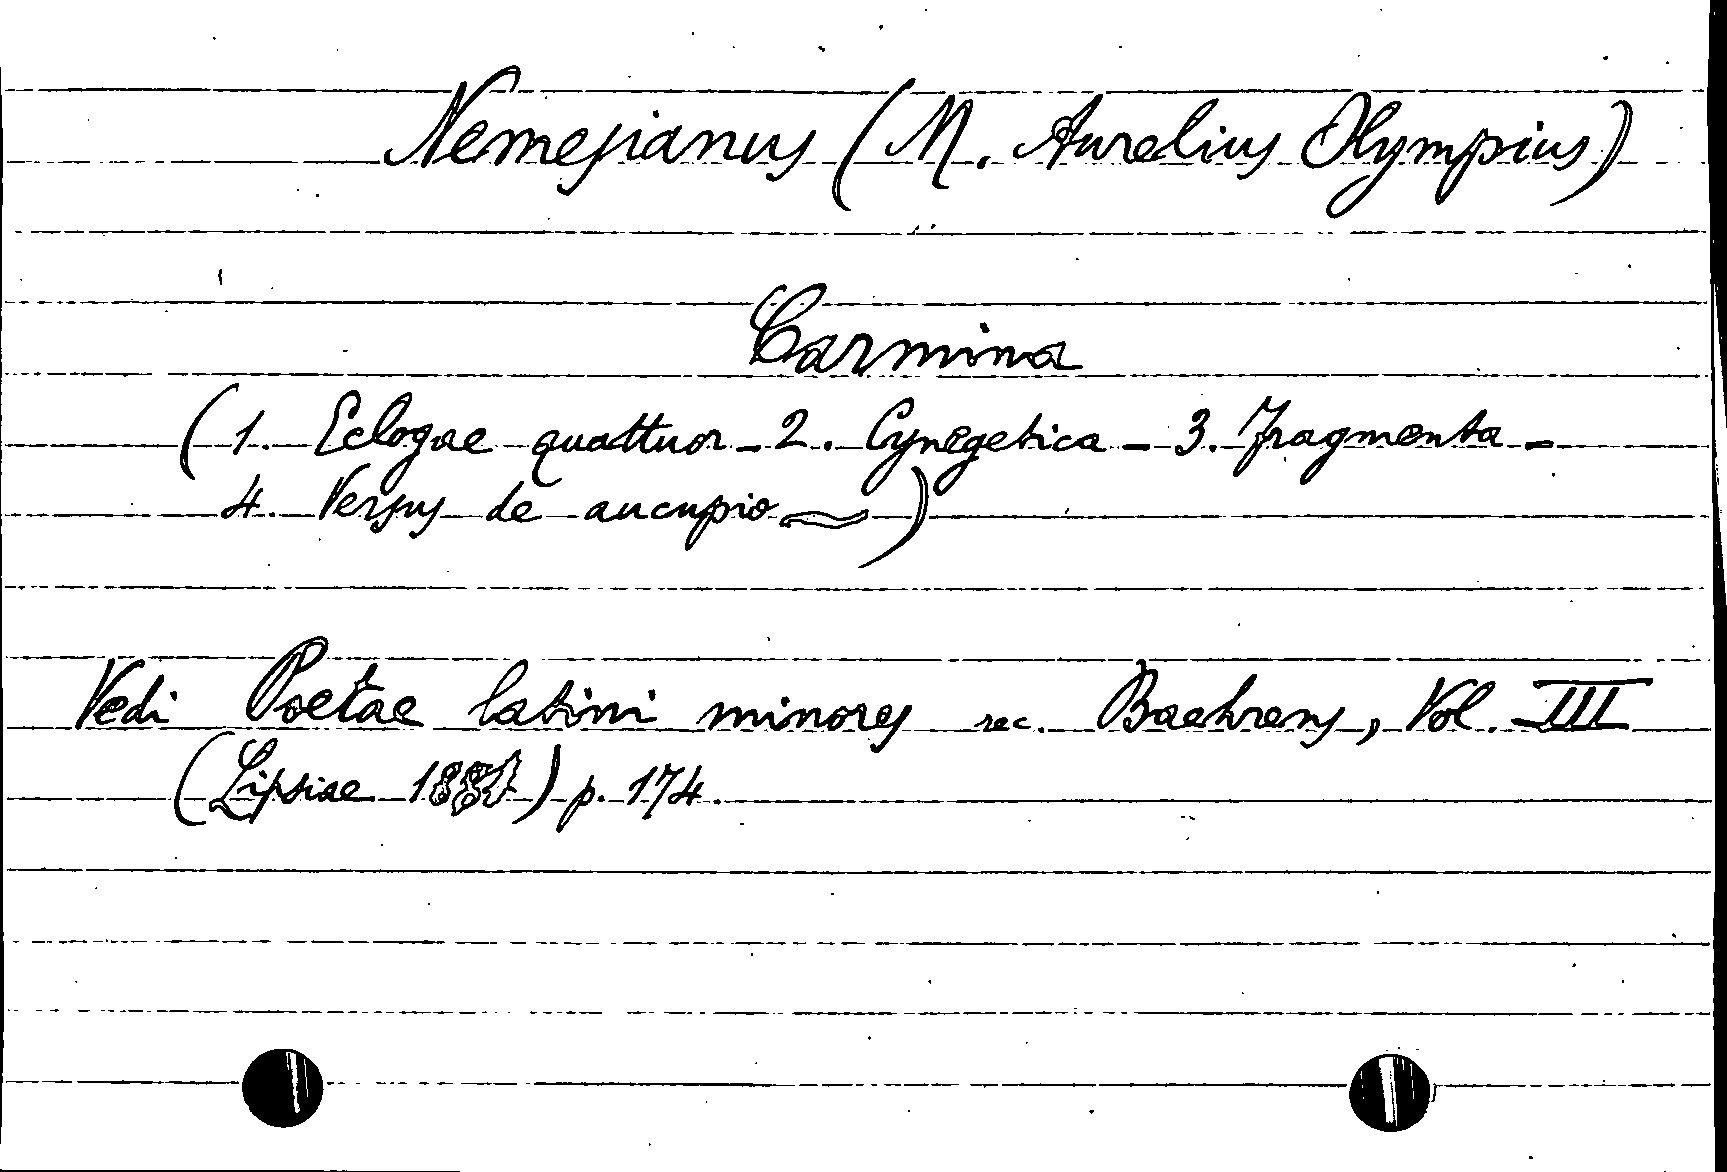 Nemesianus (M. Aurelius Olympius)
Carmina
(1. Eclogae quattuor - 2. Cynegetica - 3. Fragmenta -
4. Versus de aucupio)
Vedi Poetae latini minores rec. Baehrens, Vol. III
(Lipsiae ) p. 174.